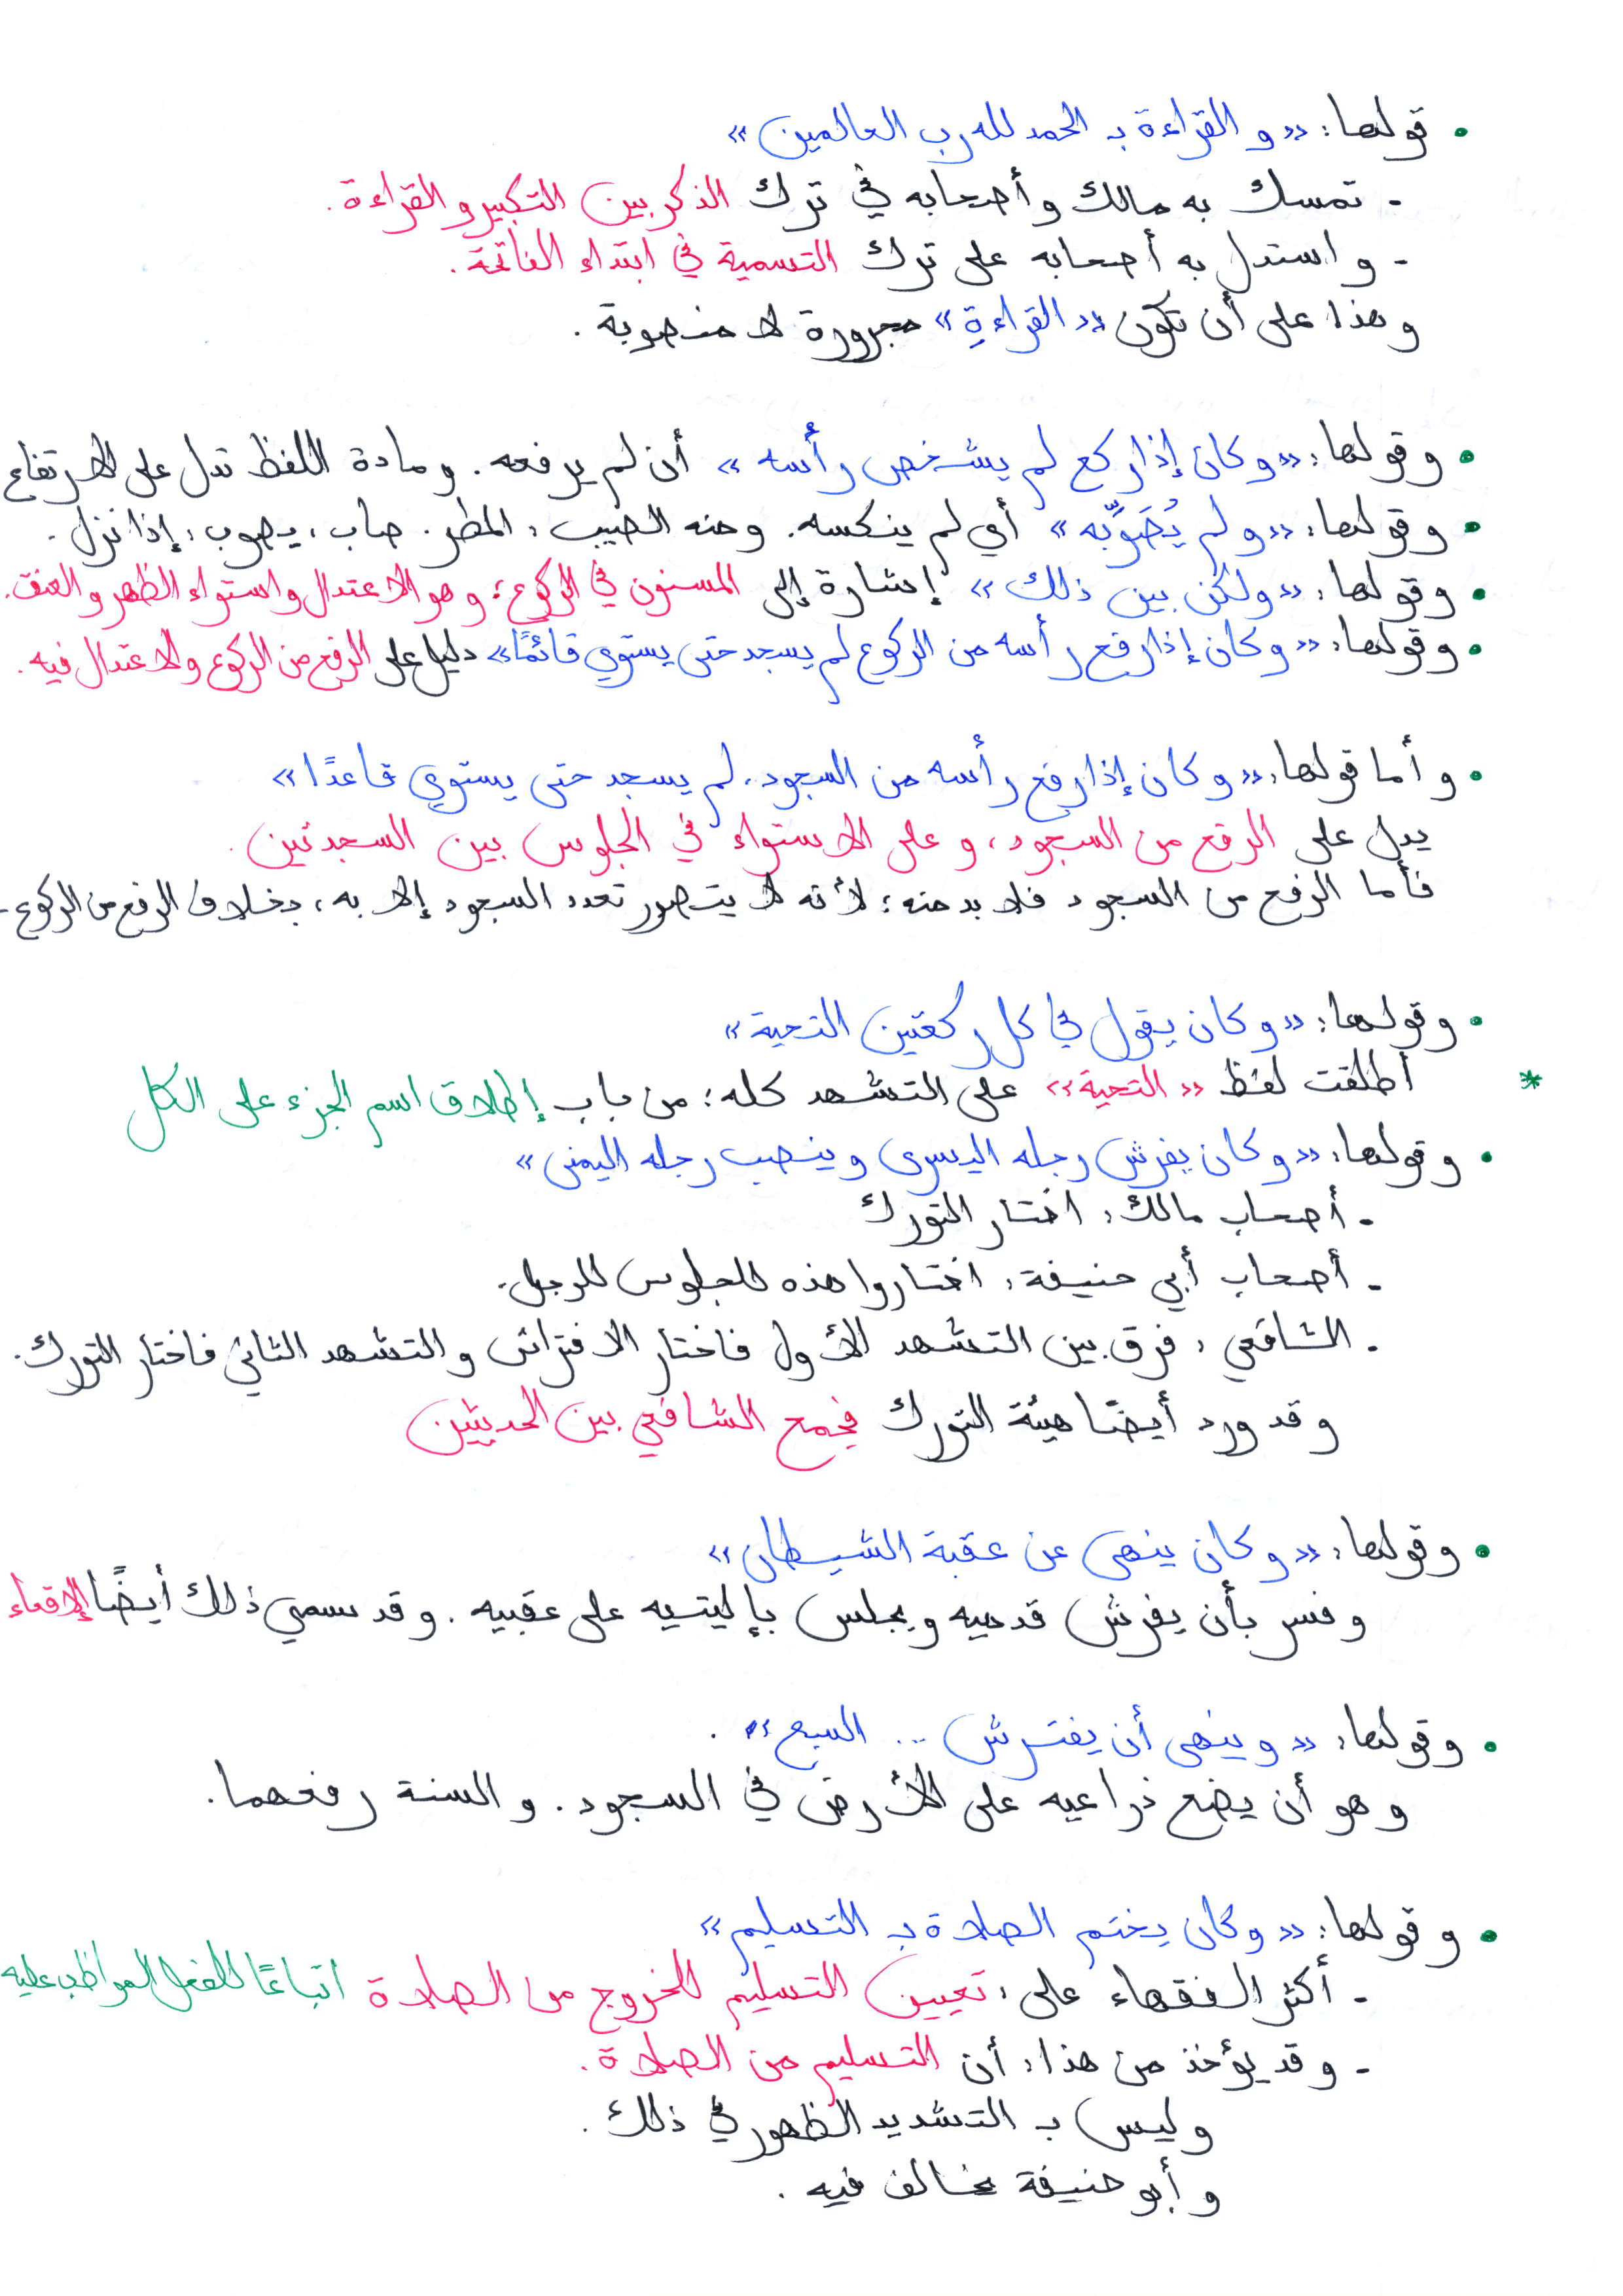 • قولها: «والقراءة بـ الحمد لله رب العالمين»
- تمسك به مالك وأصحابه في ترك الذكر بين التكبير والقراءة.
- واستدل به أصحابه على ترك التسمية في ابتداء الفاتحة.
وهذا على أن تكون «القراءةِ» مجرورة لا منصوبة.
• وقولها: «وكان إذا ركع لم يشخص رأسه» أن لم يرفعه. ومادة اللفظ تدل على الارتفاع
• وقولها: «ولم يُصَوِّبه» أي لم ينكسه. ومنه الصيب: المطر. صاب، يصوب: إذا نزل.
• وقولها: «ولكن بين ذلك» إشارة إلى المسنون في الركوع؛ وهو الاعتدال واستواء الظهر والعنق.
• وقولها: «وكان إذا رفع رأسه من الركوع لم يسجد حتى يستوي قائمًا» دليل على الرفع من الركوع والاعتدال فيه.
• وأما قولها: «وكان إذا رفع رأسه من السجود، لم يسجد حتى يستوي قاعدًا»
يدل على الرفع من السجود، وعلى الاستواء في الجلوس بين السجدتين.
فأما الرفع من السجود فلا بد منه؛ لأنه لا يتصور تعدد السجود إلا به، بخلاف الرفع من الركوع.
• وقولها: «وكان يقول في كل ركعتين التحية»
* أطلقت لفظ «التحية» على التشهد كله؛ من باب إطلاق اسم الجزء على الكل
• وقولها: «وكان يفرش رجله اليسرى وينصب رجله اليمنى»
- أصحاب مالك: اختار التورك
- أصحاب أبي حنيفة: اختاروا هذه للجلوس للرجل.
- الشافعي: فرق بين التشهد الأول فاختار الافتراش والتشهد الثاني فاختار التورك.
وقد ورد أيضًا هيئة التورك فجمع الشافعي بين الحديثين
• وقولها: «وكان ينهى عن عقبة الشيطان»
وفسر بأن يفرش قدميه ويجلس بإليتيه على عقبيه. وقد سمي ذلك أيضًا الإقعاء
• وقولها: «وينهى أن يفترش .. السبع».
وهو أن يضع ذراعيه على الأرض في السجود. والسنة رفعهما.
• وقولها: «وكان يختم الصلاة بـ التسليم»
- أكثر الفقهاء على: تعيين التسليم للخروج من الصلاة اتباعًا للفعل المواظب عليه
- وقد يؤخذ من هذا: أن التسليم من الصلاة.
وليس بـ التشديد الظهور في ذلك.
وأبو حنيفة يخالف فيه.